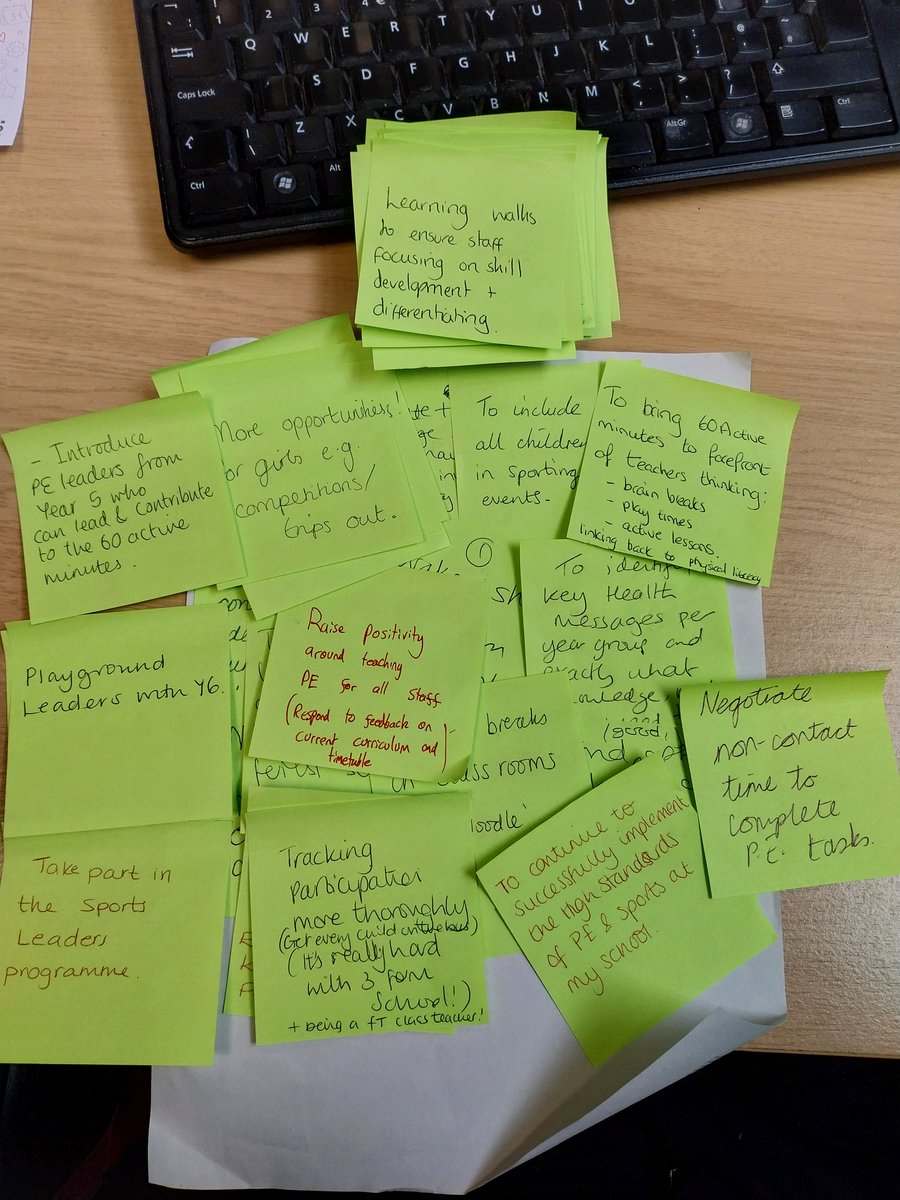 Learning walks
to ensure staff
focusing on skill
development +
differentiating.
- Introduce
PE leaders from
Year 5 who
can lead & contribute
to the 60 active
minutes.
More opportunities!
for girls e.g.
competitions/
trips out.
To include
all children
in sporting
events.
①
To bring 60 Active
minutes to forefront
of teachers thinking:
- brain breaks
- play times
- active lessons.
linking back to physical literacy
To identify
key Health
messages per
year group and
exactly what
(good,
Playground
Leaders with Y6.
Raise positivity
around teaching
PE for all staff
(Respond to feedback on
current curriculum and
timetable)
breaks
Negotiate
non-contact
time to
complete
P.E. tasks.
Take part in
the Sports
Leaders
programme.
Tracking
participation
more thoroughly
(Get every child on the bus)
(It's really hard
with 3 form
school!)
+ being a FT class teacher!
To continue to
successfully implement
the High Standards
of PE & Sports at
my school.
Q W E R T Y U I
S D F G H J K L
Caps Lock
Z X C V B N M
Ctrl
Alt
AltGr
Ctrl